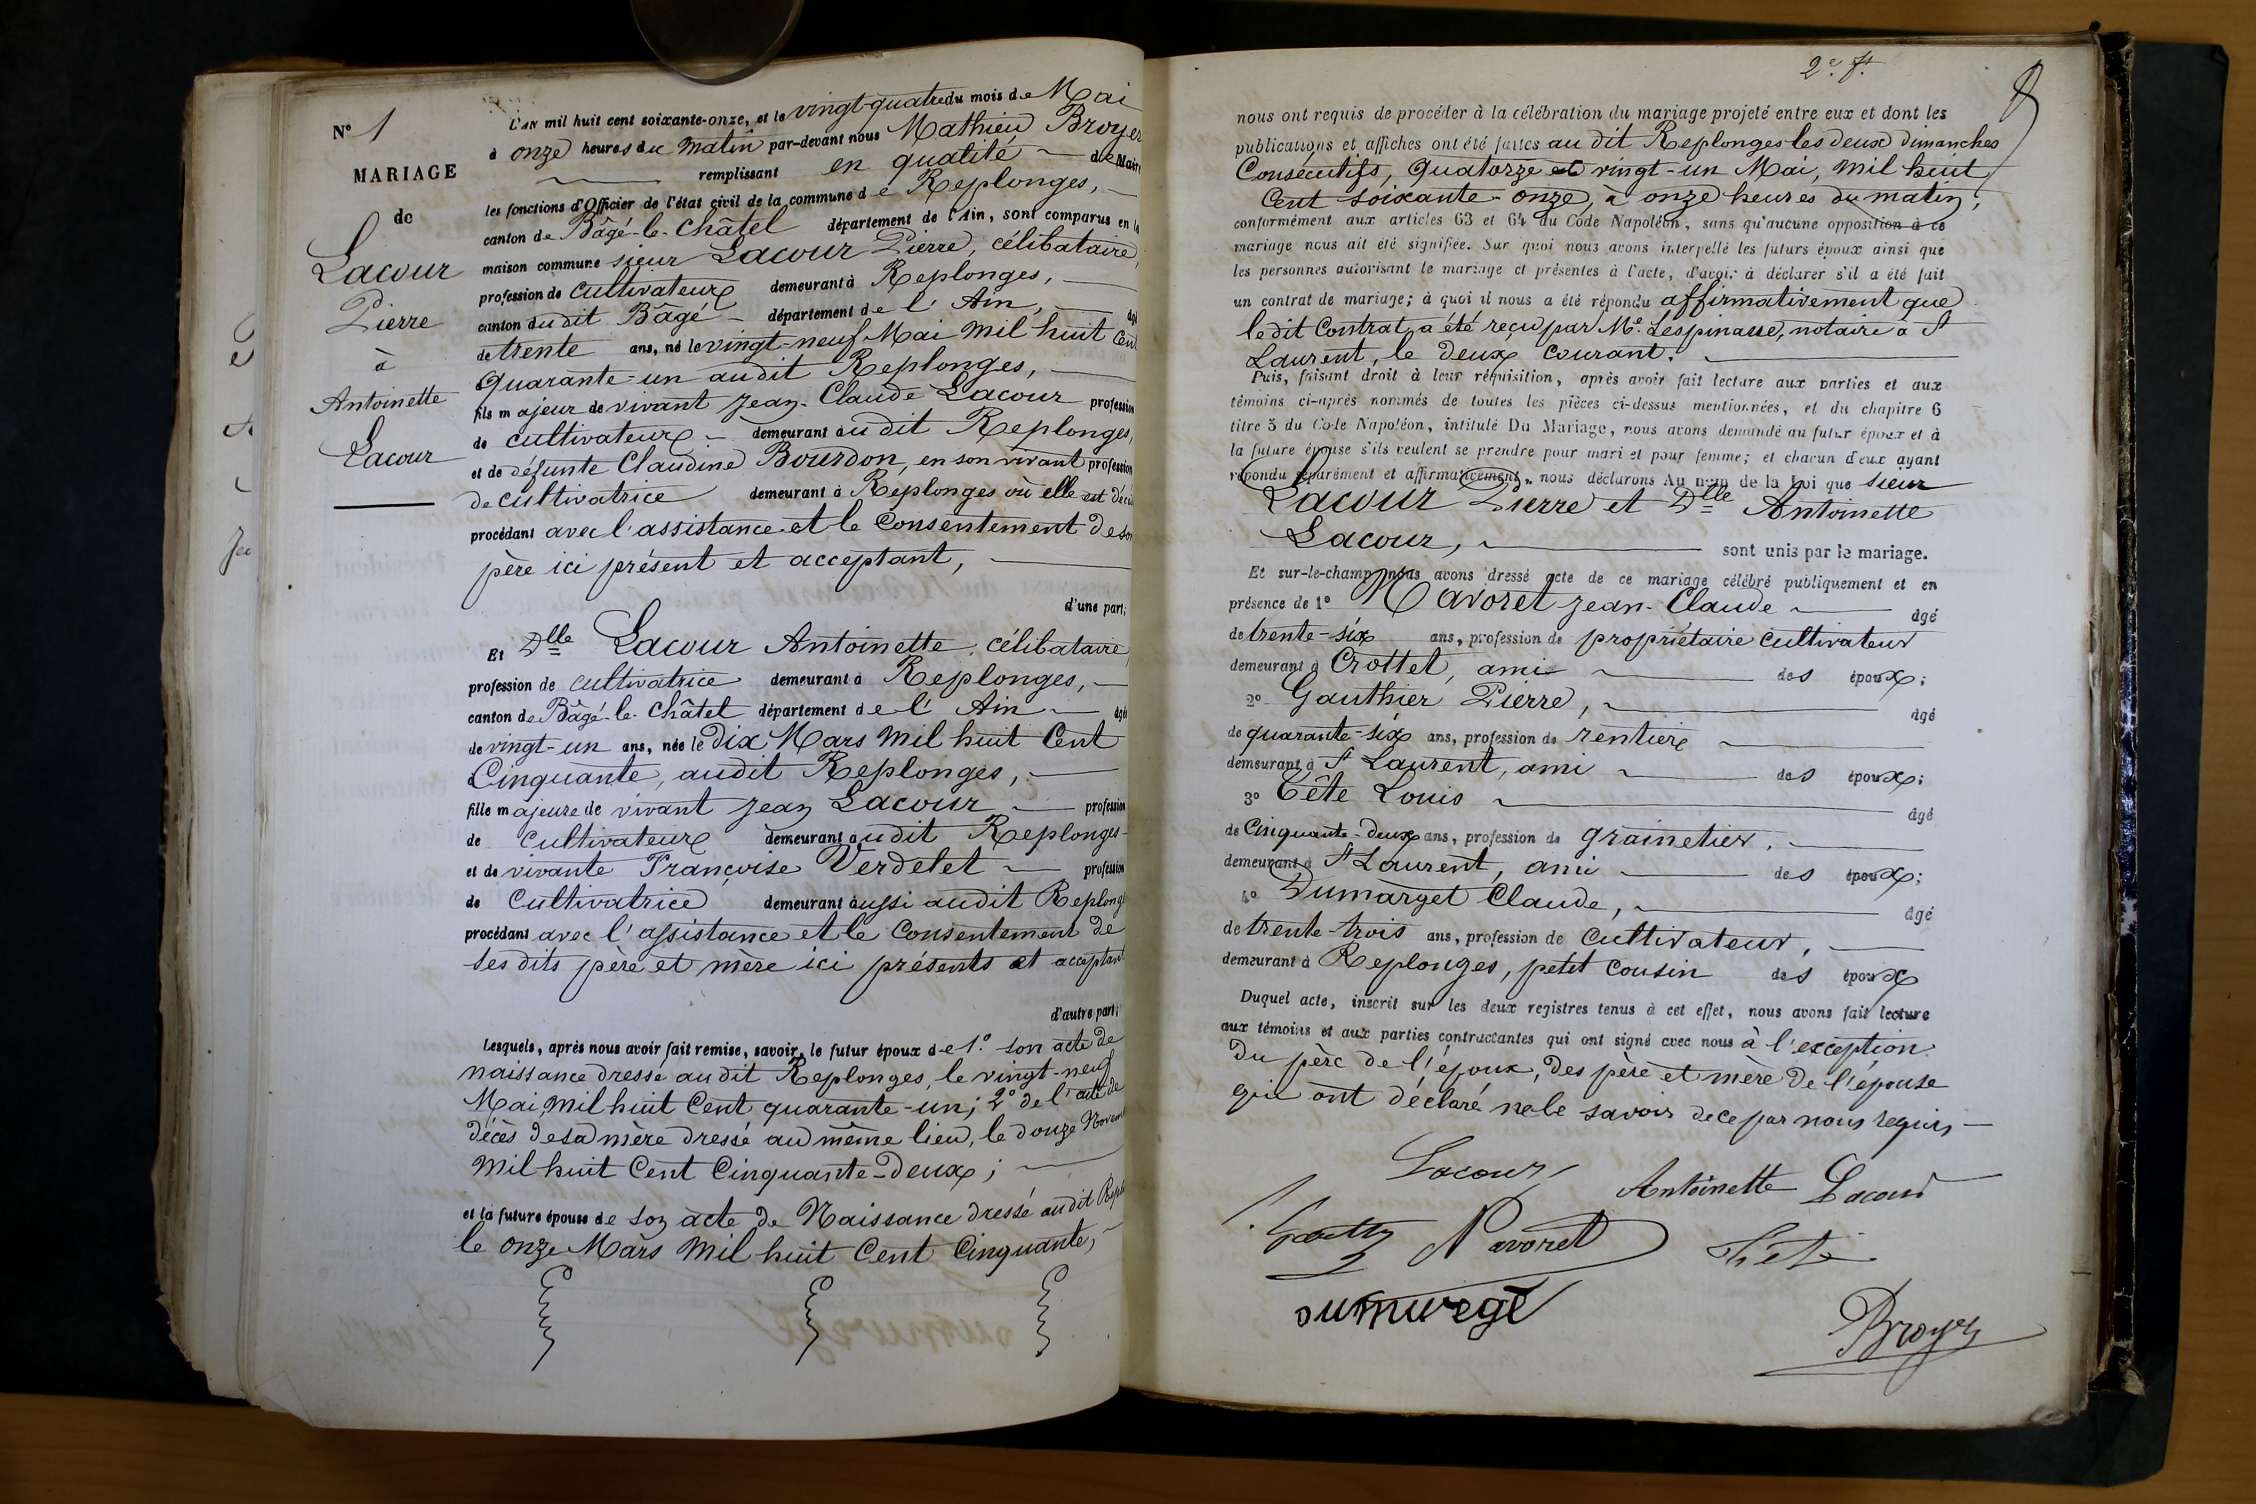 N° 1
MARIAGE
de
Lacour
Pierre
à
Antoinette
Lacour
L'AN mil huit cent soixante-onze, et le vingt-quatre du mois de Mai
à onze heures du matin par-devant nous Mathieu Broyer
remplissant en qualité de Maire
les fonctions d'Officier de l'état civil de la commune de Replonges,
canton de Bâgé-le-Châtel département de l'Ain, sont comparus en la
maison commune sieur Lacour Pierre, célibataire,
profession de cultivateur demeurant à Replonges,
canton dudit Bâgé département de l'Ain, âgé
de trente ans, né le vingt-neuf Mai mil huit Cent
quarante-un audit Replonges,
fils majeur de vivant Jean-Claude Lacour profession
de cultivateur demeurant audit Replonges,
et de défunte Claudine Bourdon, en son vivant profession
de cultivatrice demeurant à Replonges où elle est décé
procédant avec l'assistance et le Consentement de son
père ici présent et acceptant,
d'une part;
Et Dlle Lacour Antoinette, célibataire,
profession de cultivatrice demeurant à Replonges,
canton de Bâgé-le-Châtel département de l'Ain âgée
de vingt-un ans, née le Dix Mars mil huit Cent
Cinquante, audit Replonges,
fille majeure de vivant Jean Lacour profession
de cultivateur demeurant audit Replonges
et de vivante Françoise Verdelet profession
de Cultivatrice demeurant aussi audit Replong
procédant avec l'assistance et le Consentement de
ses dits père et mère ici présents et acceptant
d'autre part;
Lesquels, après nous avoir fait remise, savoir, le futur époux de 1° son acte de
naissance dressé audit Replonges, le vingt-neuf
Mai mil huit Cent quarante-un; 2° de l'acte de
décès de sa mère dressé au même lieu, le douze Novem
mil huit Cent Cinquante-Deux;
et la future épouse de son acte de Naissance dressé audit Repl
le onze Mars mil huit Cent Cinquante,
2e ft.
8
nous ont requis de procéder à la célébration du mariage projeté entre eux et dont les
publications et affiches ont été faites au dit Replonges les deux dimanches
Consécutifs, quatorze et vingt-un Mai, mil huit
Cent soixante-onze, à onze heures du matin,
conformément aux articles 63 et 64 du Code Napoléon, sans qu'aucune opposition à ce
mariage nous ait été signifiée. Sur quoi nous avons interpellé les futurs époux ainsi que
les personnes autorisant le mariage et présentes à l'acte, d'avoir à déclarer s'il a été fait
un contrat de mariage; à quoi il nous a été répondu affirmativement que
le dit Contrat a été reçu par Me. Lespinasse, notaire à St
Laurent, le deux courant.
Puis, faisant droit à leur réquisition, après avoir fait lecture aux parties et aux
témoins ci-après nommés de toutes les pièces ci-dessus mentionnées, et du chapitre 6
titre 5 du Code Napoléon, intitulé Du Mariage, nous avons demandé au futur époux et à
la future épouse s'ils veulent se prendre pour mari et pour femme; et chacun d'eux ayant
répondu séparément et affirmativement, nous déclarons Au nom de la Loi que sieur
Lacour Pierre et Dlle Antoinette
Lacour, sont unis par le mariage.
Et sur-le-champ nous avons dressé acte de ce mariage célébré publiquement et en
présence de 1° Navoret Jean-Claude âgé
de trente-six ans, profession de propriétaire cultivateur
demeurant à Crottet, ami des époux;
2° Gauthier Pierre, âgé
de quarante-six ans, profession de rentier
demeurant à St Laurent, ami des époux;
3° Tête Louis âgé
de Cinquante-deux ans, profession de grainetier.
demeurant à St Laurent, ami des époux;
4° Dumarget Claude, âgé
de trente-trois ans, profession de cultivateur,
demeurant à Replonges, petit cousin des époux
Duquel acte, inscrit sur les deux registres tenus à cet effet, nous avons fait lecture
aux témoins et aux parties contractantes qui ont signé avec nous à l'exception
du père de l'époux, des père et mère de l'épouse
qui ont déclaré ne le savoir de ce par nous requis
Lacour Antoinette Lacour
Navoret
Broyer